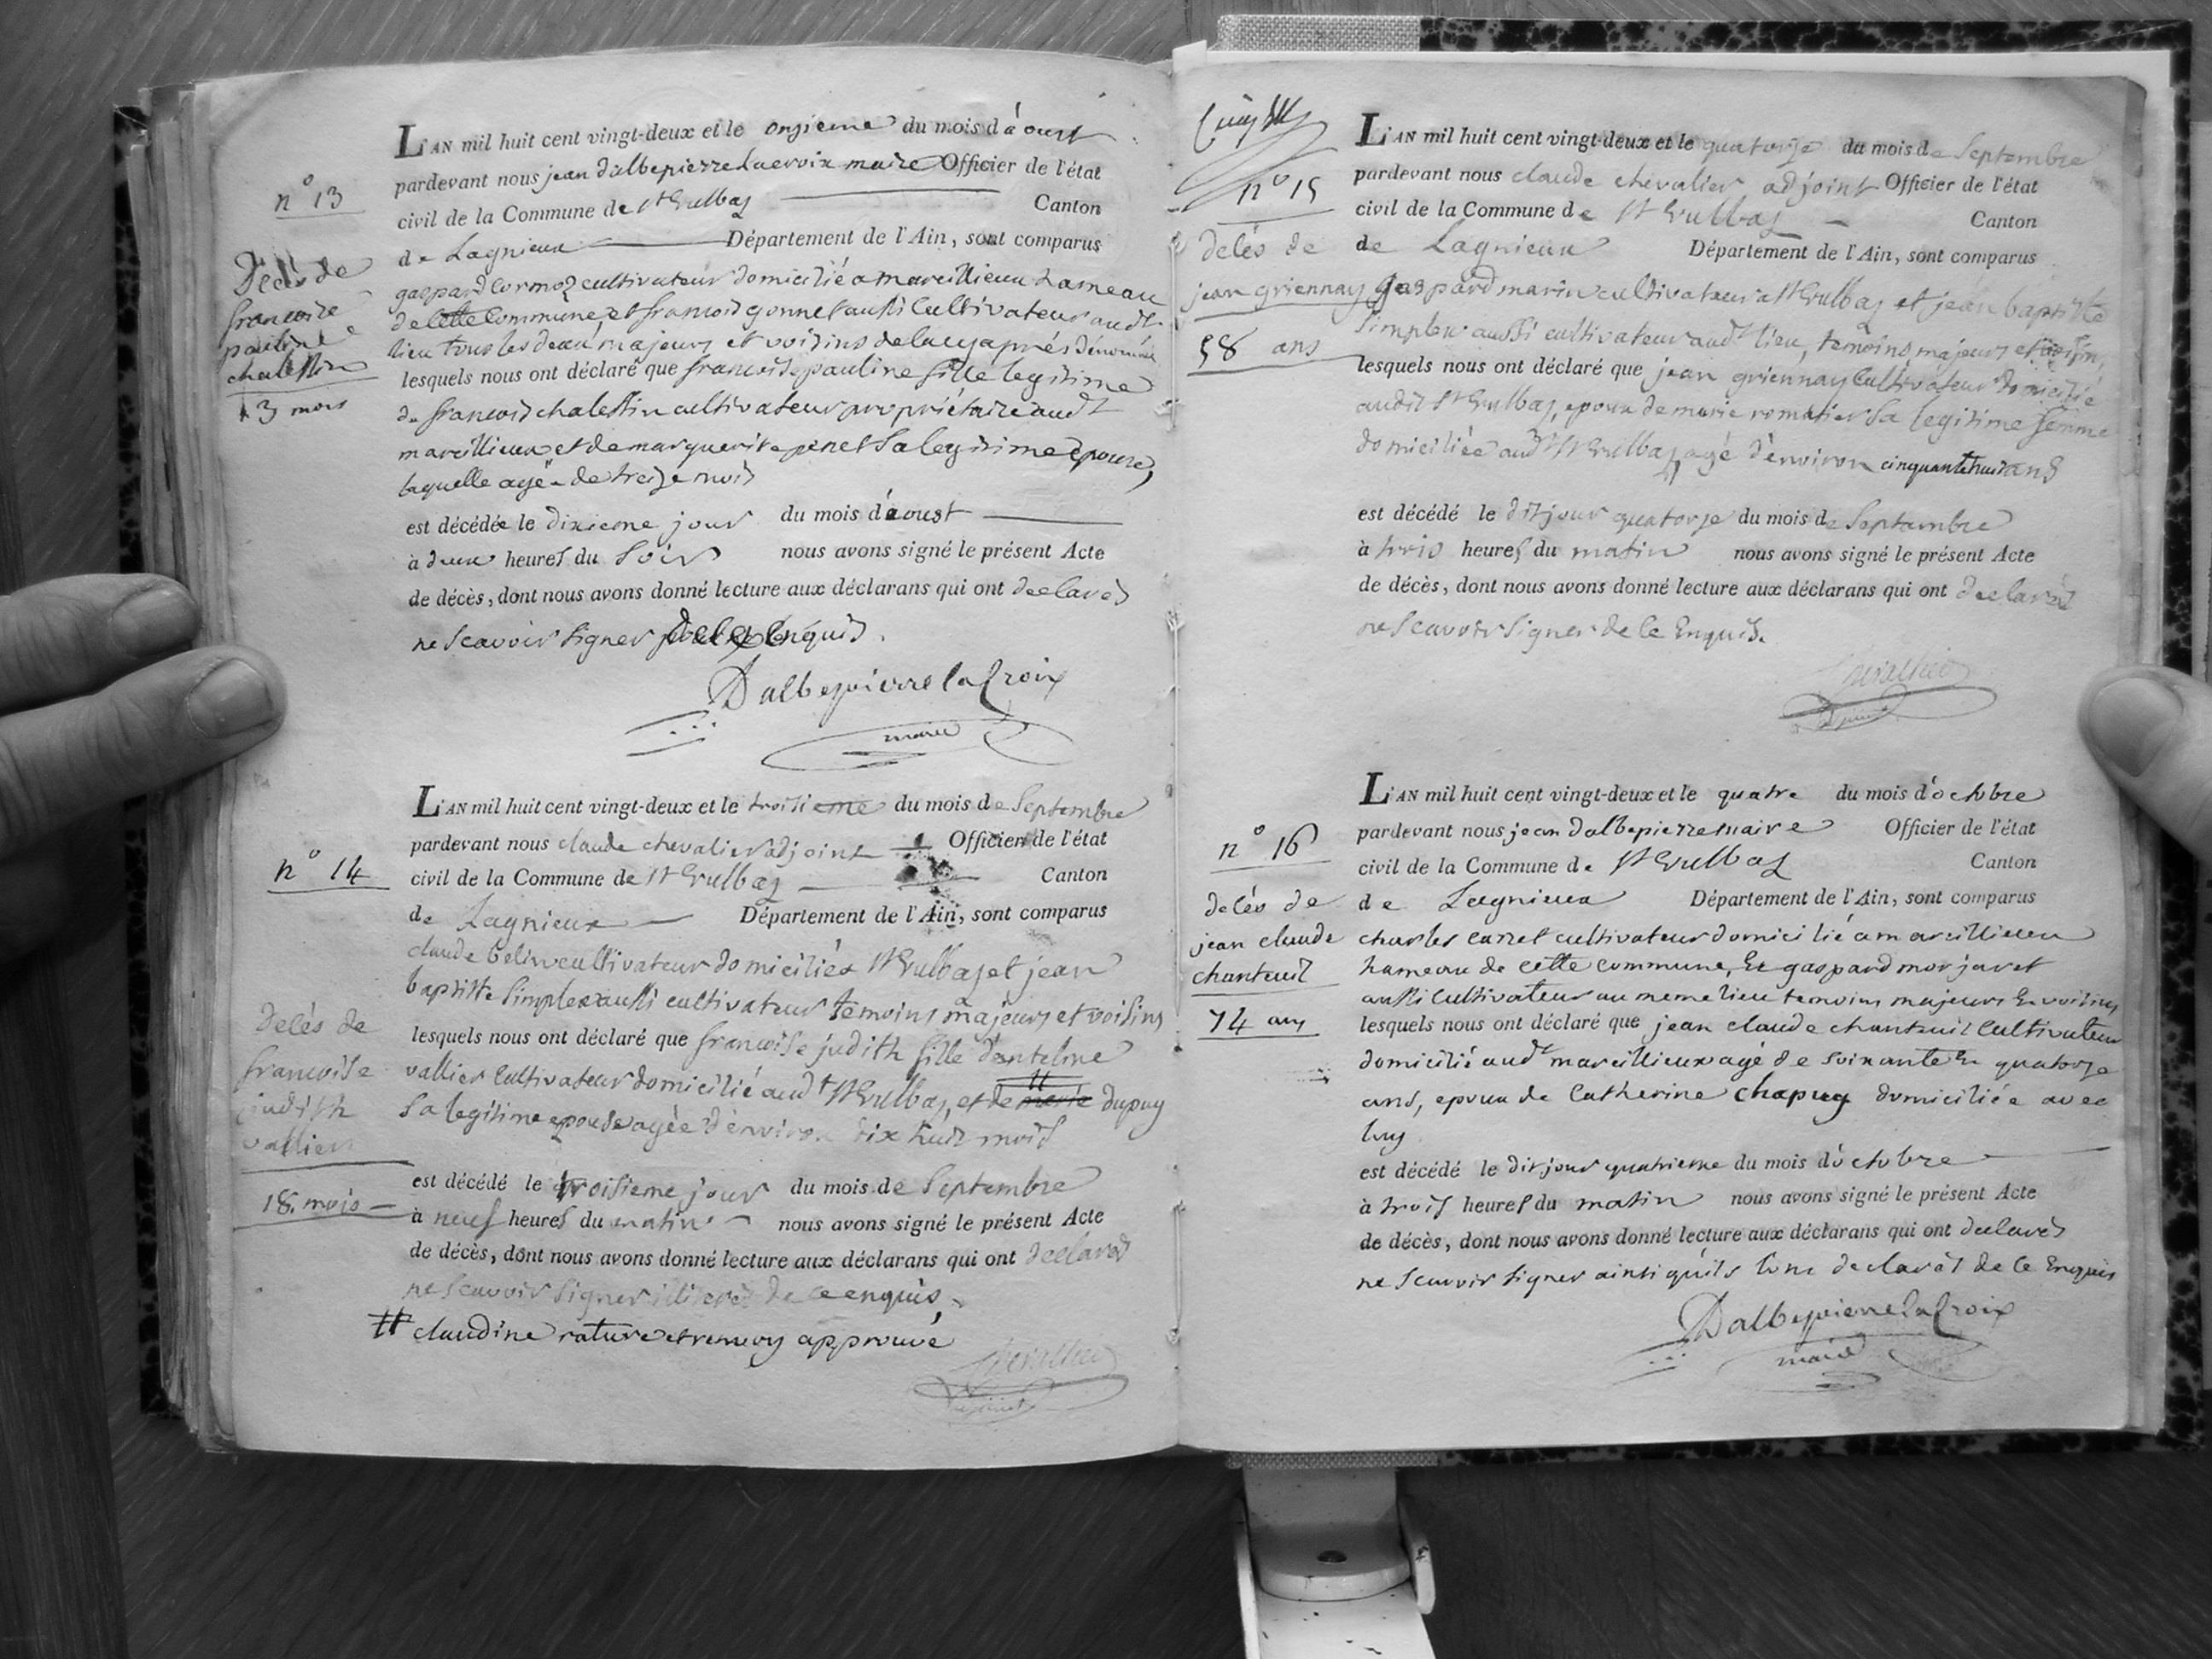 n° 13
Décès de
francoise
pauline
chalestin
13 mois
L'AN mil huit cent vingt-deux et le onzieme du mois d'aoust
pardevant nous jean dalbepierre lacroix maire Officier de l'état
civil de la Commune de St Vulbas Canton
de Lagnieux Département de l'Ain, sont comparus
gaspard cormoz cultivateur domicilié a marcillieux hameau
de cette commune, et francois gonnet aussi cultivateur audt
lieu tous les deux majeurs et voisins de la cy après dénommée
lesquels nous ont déclaré que francoise pauline fille legitime
de francois chalestin cultivateur propriétaire audt
marcillieux et de marguerite penet sa legitime epouse,
laquelle agée de treize mois
est décédée le dixieme jour du mois d'aoust
à deux heures du soir nous avons signé le présent Acte
de décès, dont nous avons donné lecture aux déclarans qui ont declarés
ne scavoir signer de ce enquis.
Dalbepierre laCroix
maire
n° 14
Delés de
francoise
judith
vallier
18 mois
L'AN mil huit cent vingt-deux et le troisieme du mois de Septembre
pardevant nous claude chevalier adjoint Officier de l'état
civil de la Commune de St Vulbas Canton
de Lagnieux Département de l'Ain, sont comparus
claude belin cultivateur domiciliés St Vulbas et jean
baptiste Simplex aussi cultivateur temoins majeurs et voisins
lesquels nous ont déclaré que francoise judith fille d'antelme
vallier cultivateur domicilié audt St Vulbas, et de marie dupuy
sa legitime epouse agée d'environ dix huit mois
est décédé le troisieme jour du mois de Septembre
à neuf heures du matin nous avons signé le présent Acte
de décès, dont nous avons donné lecture aux déclarans qui ont declarés
ne scavoir signer de ce enquis
# claudine rature et renvoy approuvé
Chevallier
adjoint
n° 15
delés de
jean griennay
58 ans
L'AN mil huit cent vingt-deux et le quatorze du mois de Septembre
pardevant nous claude chevalier adjoint Officier de l'état
civil de la Commune de St Vulbas Canton
de Lagnieux Département de l'Ain, sont comparus
gaspard marin cultivateur a St Vulbas et jean baptiste
Simplex aussi cultivateur audt lieu, temoins majeurs et voisins,
lesquels nous ont déclaré que jean griennay cultivateur domicilié
audit St Vulbas, epoux de marie romatier sa legitime femme
domiciliée audt St Vulbas, agé d'environ cinquante huit ans
est décédé le dit jour quatorze du mois de Septambre
à trois heures du matin nous avons signé le présent Acte
de décès, dont nous avons donné lecture aux déclarans qui ont declarés
ne scavoir signer de ce Enquis.
Chevallier
adjoint
n° 16
delés de
jean claude
chanteuil
74 ans
L'AN mil huit cent vingt-deux et le quatre du mois d'octobre
pardevant nous jean dalbepierre maire Officier de l'état
civil de la Commune de St Vulbas Canton
de Lagnieux Département de l'Ain, sont comparus
charles carret cultivateur domicilié a marcillieux
hameau de cette commune, Et gaspard morjaret
aussi cultivateur au meme lieu temoins majeurs Et voisins
lesquels nous ont déclaré que jean claude chanteuil cultivateur
domicilié audt marcillieux agé de soixante Et quatorze
ans, epoux de Catherine chapuy domiciliée avec
luy
est décédé le dit jour quatrieme du mois d'octobre
à trois heures du matin nous avons signé le présent Acte
de décès, dont nous avons donné lecture aux déclarans qui ont declarés
ne scavoir signer ainsi qu'ils l'ont declarés de ce Enquis
Dalbepierre laCroix
maire